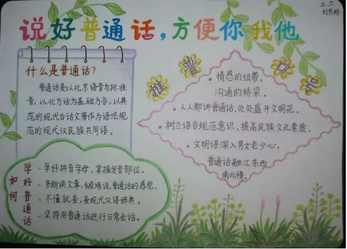 说好普通话,方便你我他
什么是普通话?
普通话是以北京语音为标准
音,以北方话为基础方言,以典
范的现代白话文著作为语法规
范的现代汉民族共同语。
推普口号
· 情感的纽带,
沟通的桥梁。
· 人人都讲普通话,处处盛开文明花。
· 树立语言规范意识,提高民族文化素质。
· 文明语深入男女老少心,
普通话融江东西
南北情。
如何
学好普通话
· 学好拼音字母,掌握发音部位。
· 多朗读文章,
· 不懂就查,
· 坚持用普通话进行日常会话。